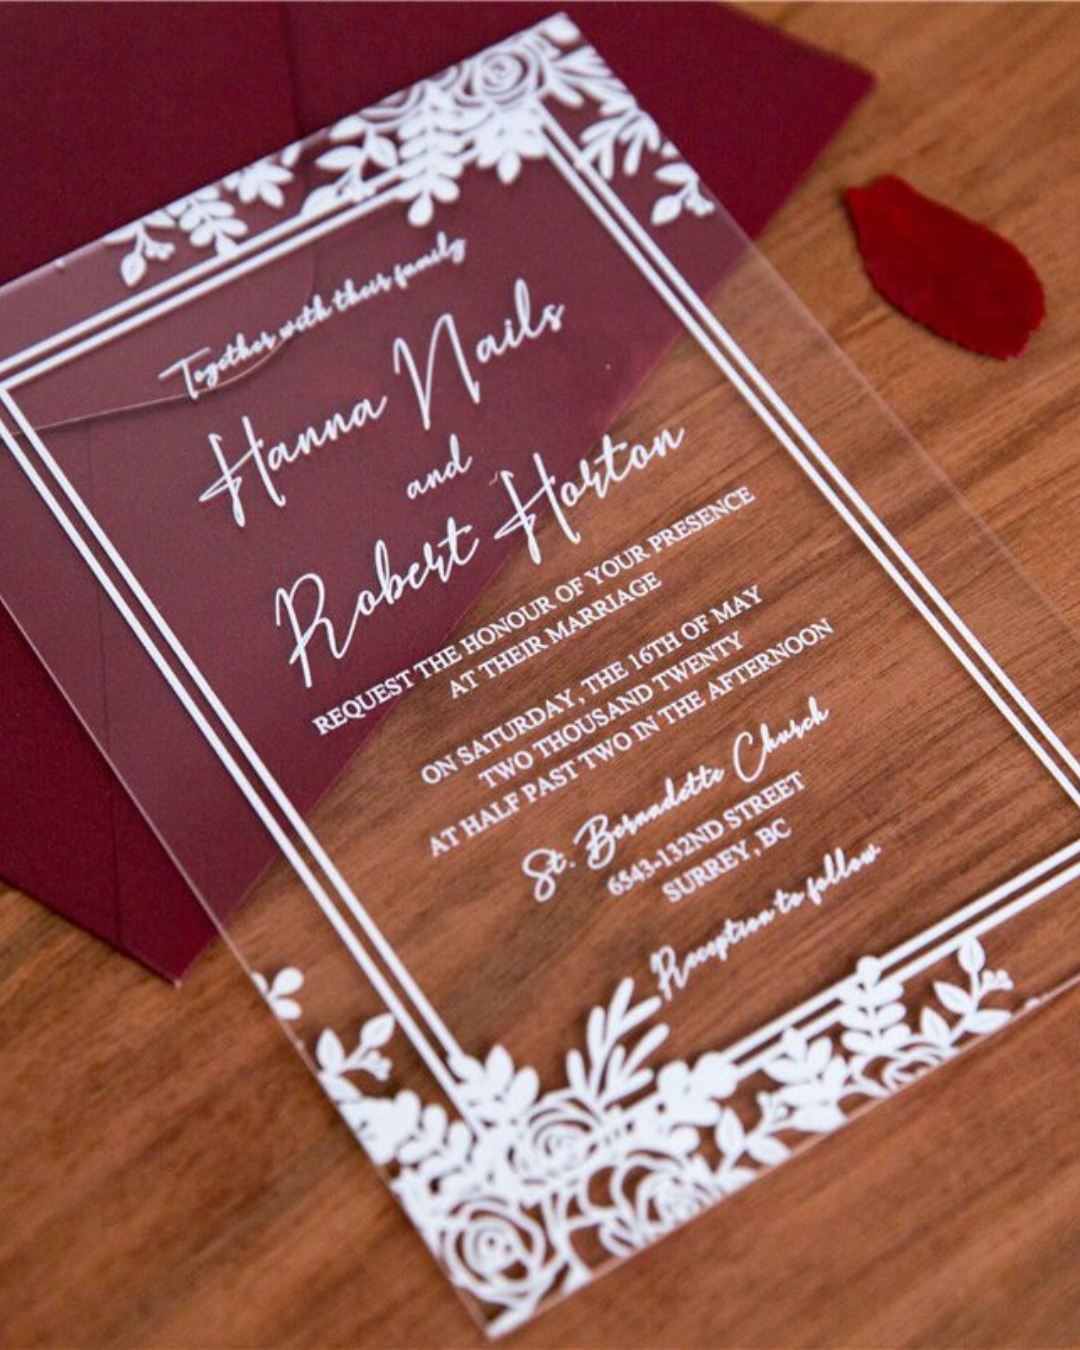 Together with their family
Hanna Nails
and
Robert Horton
REQUEST THE HONOUR OF YOUR PRESENCE
AT THEIR MARRIAGE
ON SATURDAY, THE 16TH OF MAY
TWO THOUSAND TWENTY
AT HALF PAST TWO IN THE AFTERNOON
St. Bernadette Church
6543-132ND STREET
SURREY, BC
Reception to follow